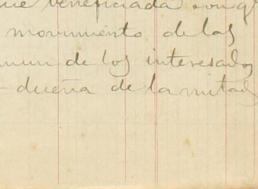 ue beneficiada con q
movimiento de las
mun de los interesados
dueña de la mitad